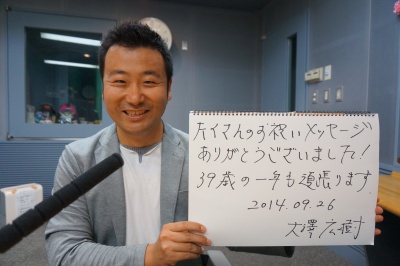 たくさんのお祝いメッセージ
ありがとうございました！
39歳の一年も頑張ります
2014.09.26
大澤広樹